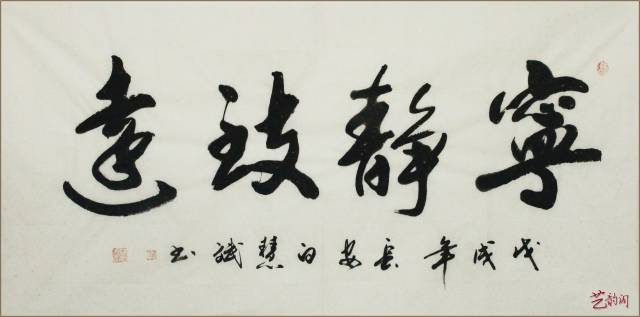 寧靜致遠
戊戌年長安白慧斌书
艺韵阁